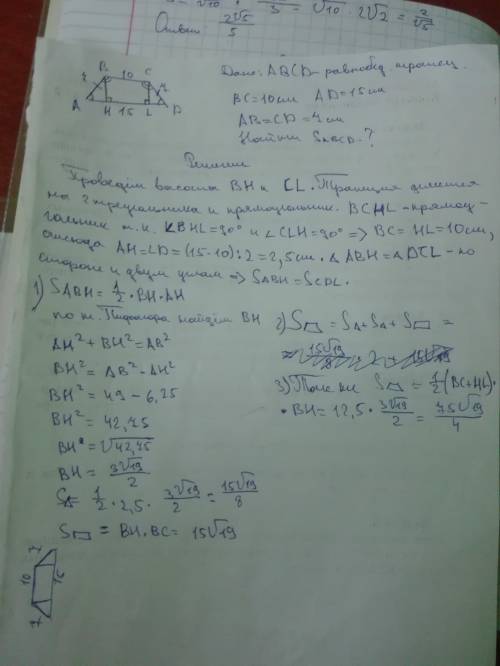 Ответ: 2√5/5
B 10 C
A H 15 L D
Дано: ABCD - равнобед. трапец.
BC=10см AD=15см
AB=CD=7см
Найти S_ABCD-?
Решение
Проведём высоты BH и CL. Трапеция делится
на 2 треугольника и прямоугольник. BCHL-прямоу-
гольник т.к. ∠BHL=90° и ∠CLH=90° => BC=HL=10см,
отсюда AH=LD=(15-10):2=2,5см. △ABH=△DCL-по
стороне и двум углам => S_ABH=S_CDL.
1) S_ABH=1/2·BH·AH
по т. Пифагора найдём BH
AH²+BH²=AB²
BH²=AB²-AH²
BH²=49-6,25
BH²=42,75
BH=√42,75
BH=3√19/2
S△=1/2·2,5·3√19/2=15√19/8
S▭=BH·BC=15√19
2) S▱=S△+S△+S▭=
3) S▱=1/2(BC+HL)·
·BH=12,5·3√19/2=75√19/4
7
10 15
7